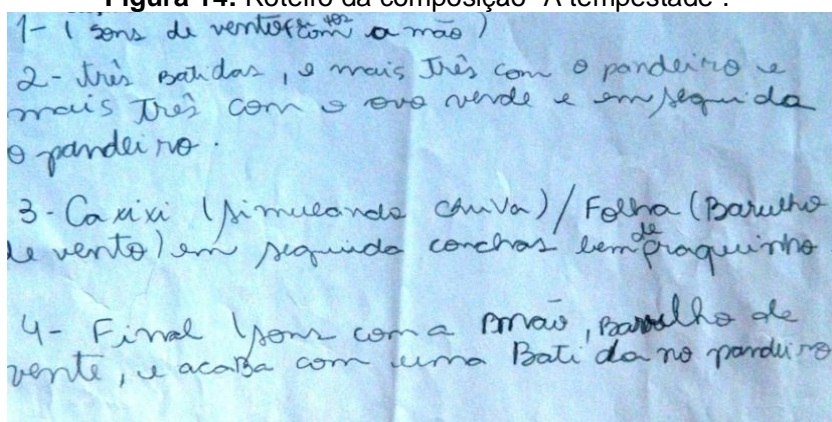 Figura 14: Roteiro da composição "A tempestade".
1- ( sons de vento com a mão)
2- três batidas, e mais três com o pandeiro e
mais três com o ovo verde e em seguida
o pandeiro.
3- Caxixi (simulando chuva) / Folha (Barulho
de vento) em seguida conchas bem de fraquinho
4- Final (sons com a mão, barulho de
vente, e acaba com uma Batida no pandeiro